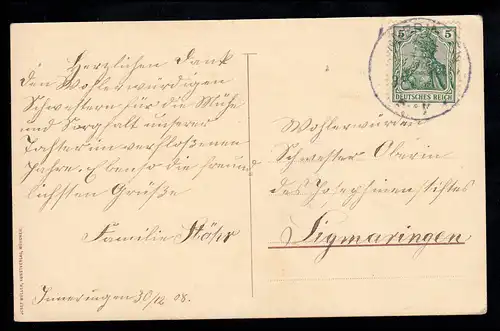 Herzlichen Dank
den Wohlerwürdigen
Schwestern für die Mühe
und Sorgfalt unserer
Tochter im verfloßenen
Jahre. Ebenso die freund
lichsten Grüße
Familie Stöhr
Inneringen 30/12 08.
5 5
DEUTSCHES REICH
Wohlerwürden
Schwester Oberin
des Josephinenstiftes
Sigmaringen
JOSEF MÜLLER, KUNSTVERLAG, MÜNCHEN.